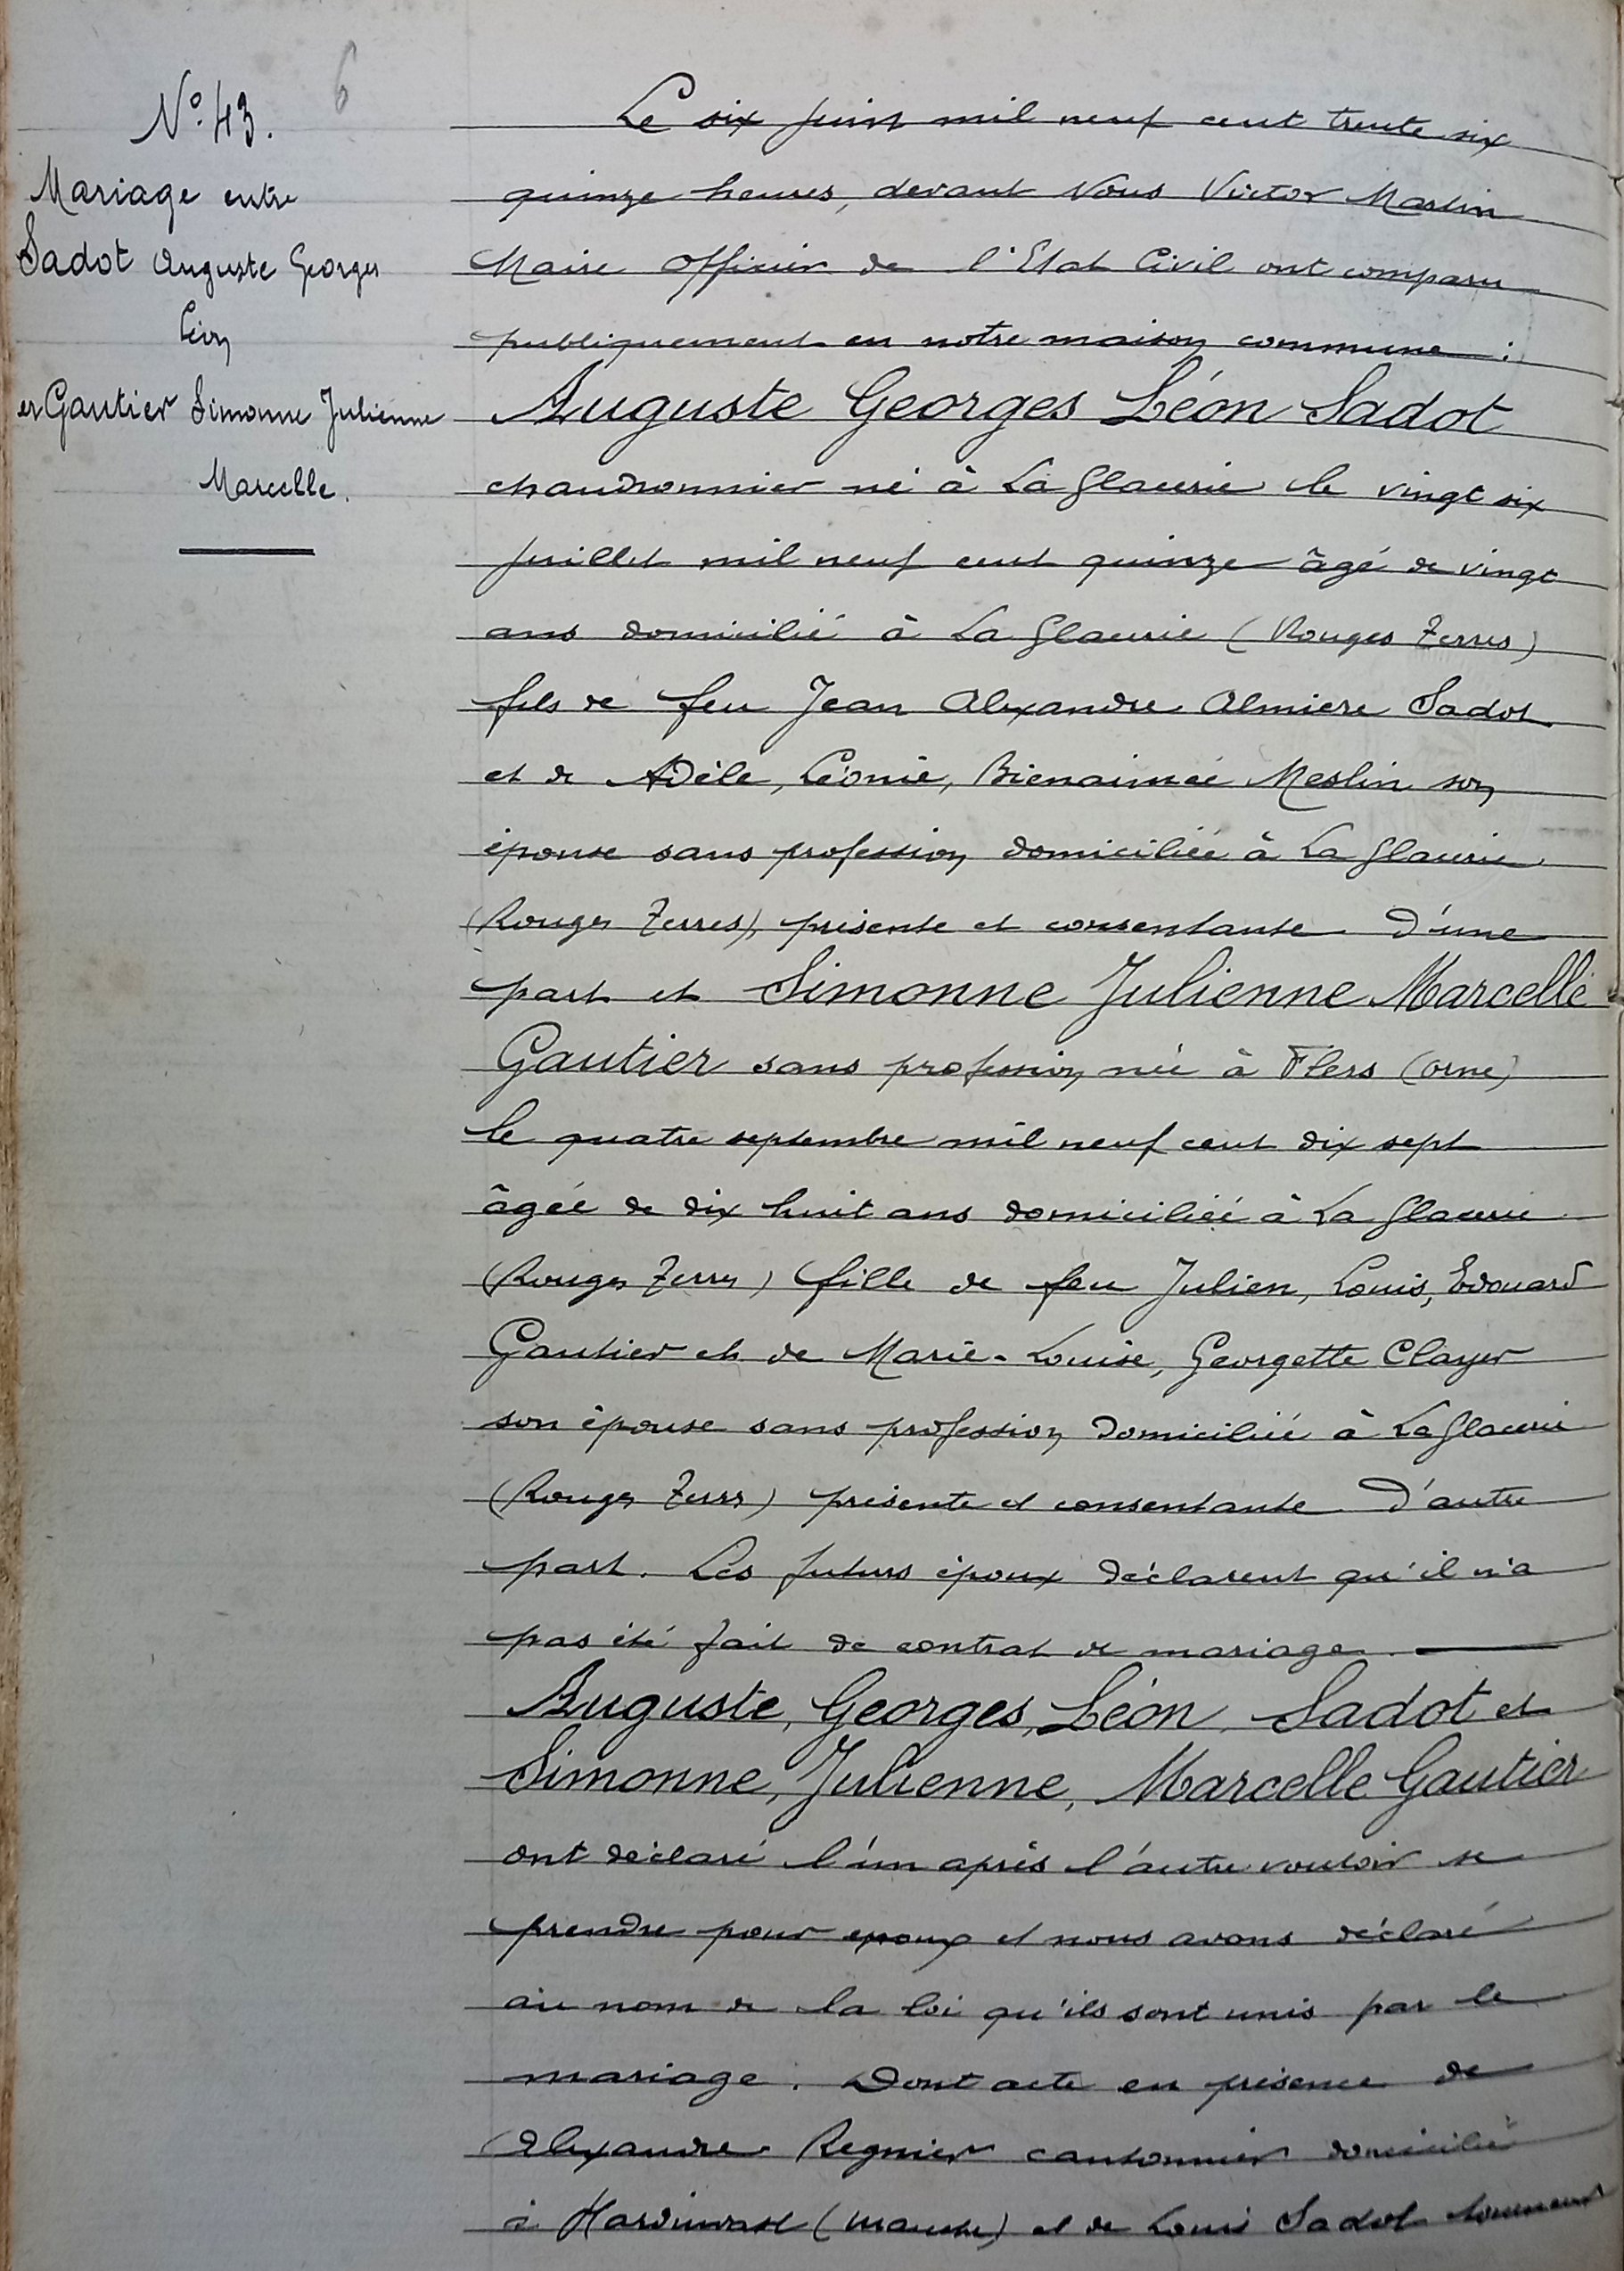 6
N° 43.
Mariage entre
Sadot Auguste Georges
Léon
et Gautier Simonne Julienne
Marcelle.
Le six juin mil neuf cent trente six
quinze heures, devant Nous Victor Martin
Maire Officier de l'Etat Civil ont comparu
publiquement en notre maison commune :
Auguste Georges Léon Sadot
chaudronnier né à La Glacerie le vingt six
juillet mil neuf cent quinze âgé de vingt
ans domicilié à La Glacerie (Rouges Terres)
fils de feu Jean Alexandre Almiere Sadot
et de Adèle, Léonie, Bienaimée Meslin son
épouse sans profession domiciliée à La Glacerie
(Rouges Terres), présente et consentante D'une
part et Simonne Julienne Marcelle
Gautier sans profession née à Flers (Orne)
le quatre septembre mil neuf cent dix sept
âgée de dix huit ans domiciliée à La Glacerie
(Rouges Terres) fille de feu Julien, Louis, Edouard
Gautier et de Marie-Louise, Georgette Clayer
son épouse sans profession domiciliée à La Glacerie
(Rouges Terres) présente et consentante D'autre
part. Les futurs époux déclarent qu'il n'a
pas été fait de contrat de mariage.
Auguste, Georges, Léon, Sadot et
Simonne, Julienne, Marcelle Gautier
ont déclaré l'un après l'autre vouloir se
prendre pour epoux et nous avons déclaré
au nom de la loi qu'ils sont unis par le
mariage. Dont acte en présence de
Alexandre Regnier cantonnier domicilié
à Hardinvast (Manche) et de Louis Sadot